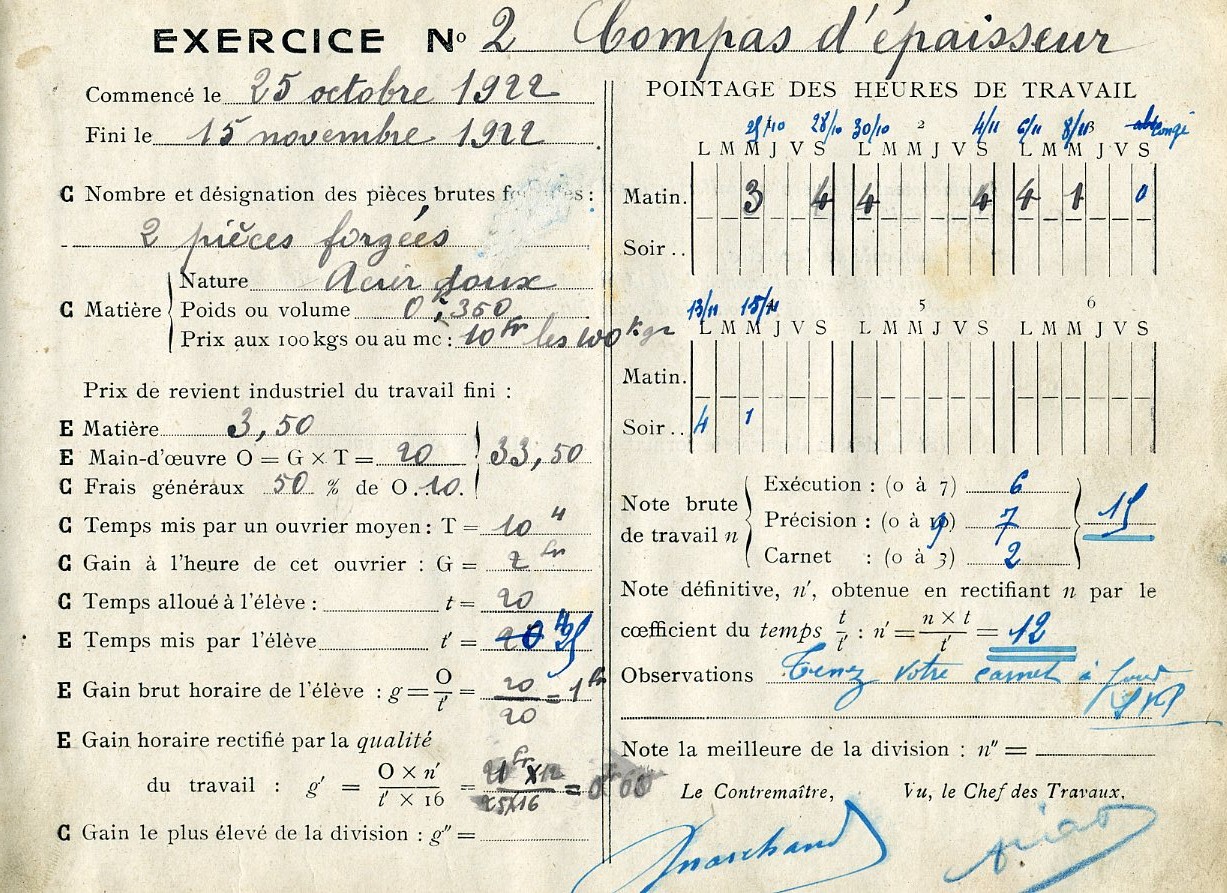 EXERCICE No 2 Compas d'épaisseur
Commencé le 25 octobre 1922
Fini le 15 novembre 1922
C Nombre et désignation des pièces brutes :
2 pièces forgées
Nature Acier doux
C Matière Poids ou volume 0,350
Prix aux 100 kgs ou au mc : 10 Fr les 100 kgr
Prix de revient industriel du travail fini :
E Matière 3,50
E Main-d'œuvre O = G × T = 20 33,50
C Frais généraux 50 % de O. 10.
C Temps mis par un ouvrier moyen : T = 10 H
C Gain à l'heure de cet ouvrier : G = 2 fr
C Temps alloué à l'élève : t = 20
E Temps mis par l'élève t' = 25
E Gain brut horaire de l'élève : g = O / t' = 20 / 20 = 1 fr
E Gain horaire rectifié par la qualité
du travail : g' = O × n' / t' × 16 = 20 fr × 12 / 25×16 = 0 fr 60
C Gain le plus élevé de la division : g" =
POINTAGE DES HEURES DE TRAVAIL
25/10 28/10 30/10 2 4/11 6/11 8/11 3 congé
L M M J V S L M M J V S L M M J V S
Matin. 3 4 4 4 4 1 0
Soir ..
13/11 15/11 5 6
L M M J V S L M M J V S L M M J V S
Matin.
Soir .. 4 1
Note brute de travail n
Exécution : (0 à 7) 6
Précision : (0 à 9) 7 15
Carnet : (0 à 3) 2
Note définitive, n', obtenue en rectifiant n par le
cœfficient du temps t / t' : n' = n × t / t' = 12
Observations Tenez votre carnet à jour
Note la meilleure de la division : n" =
Le Contremaître, Vu, le Chef des Travaux,
Marchand